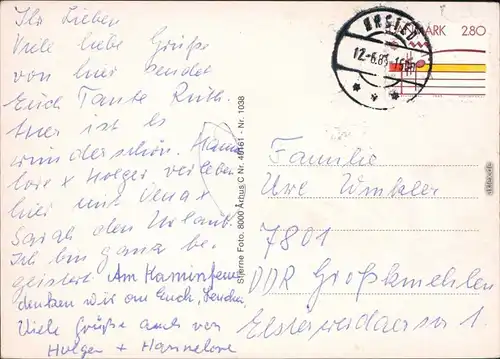 Ihr Lieben
Viele liebe Grüße
von hier sendet
Euch Tante Ruth.
Hier ist es
wunderschön. Hanne
lore + Holger verleben
hier mit Jena +
Sarah den Urlaub.
Ich bin ganz be-
geistert. Am Kaminfeuer
denken wir an Euch,
Viele Grüße auch von
Holger + Hannelore
Stjerne Foto. 8000 Århus C Nr. 40161 - Nr. 1038
DANMARK 2.80
ØRSTED
12-6.85
Familie
Uwe Winkler
7801
DDR Großkmehlen
Elsterwerdaer str 1.